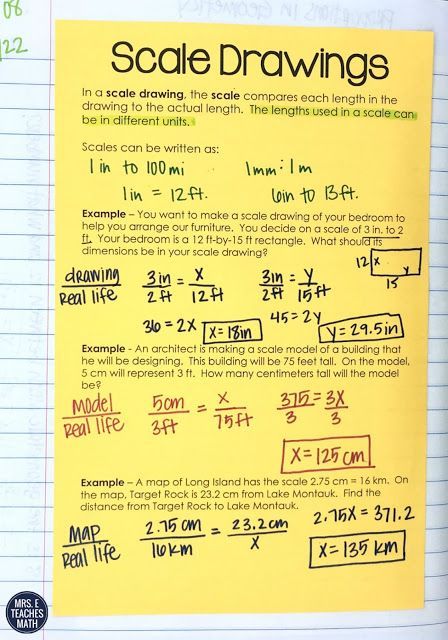 08
/22
Scale Drawings
In a scale drawing, the scale compares each length in the
drawing to the actual length. The lengths used in a scale can
be in different units.
Scales can be written as:
1 in to 100 mi 1mm : 1m
1in = 12ft. 6in to 13ft.
Example – You want to make a scale drawing of your bedroom to
help you arrange our furniture. You decide on a scale of 3 in. to 2
ft. Your bedroom is a 12 ft-by-15 ft rectangle. What should its
dimensions be in your scale drawing?
12 x
y
15
drawing / Real life 3in / 2ft = x / 12ft 3in / 2ft = y / 15ft
36 = 2x x = 18in 45 = 2y y = 29.5in
Example - An architect is making a scale model of a building that
he will be designing. This building will be 75 feet tall. On the model,
5 cm will represent 3 ft. How many centimeters tall will the model
be?
Model / Real life 5cm / 3ft = x / 75ft 375 / 3 = 3x / 3
x = 125 cm
Example – A map of Long Island has the scale 2.75 cm = 16 km. On
the map, Target Rock is 23.2 cm from Lake Montauk. Find the
distance from Target Rock to Lake Montauk.
Map / Real life 2.75 cm / 16 km = 23.2 cm / x 2.75x = 371.2
x = 135 km
MRS. E
TEACHES
MATH